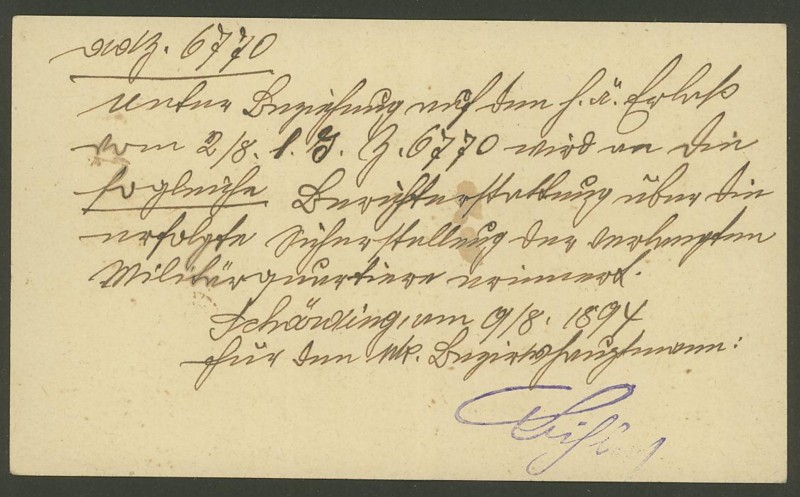 ad Z. 6770
Unter Beziehung auf den h. ä. Erlaß
vom 2/8. l. J. Z. 6770 wird an die
sogleiche Berichterstattung über die
erfolgte Sicherstellung der verlangten
Militärquartiere erinnert.
Schärding, am 9/8. 1894
Für den kk. Bezirkshauptmann: